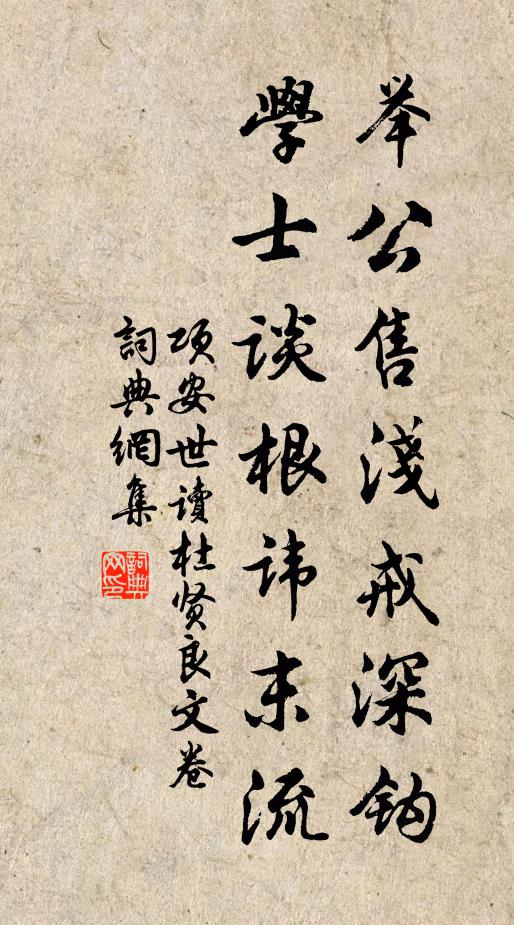 举公售淺戒深鈎
學士談根諱末流
項安世讀杜贤良文卷
詞典網集
詞典网印